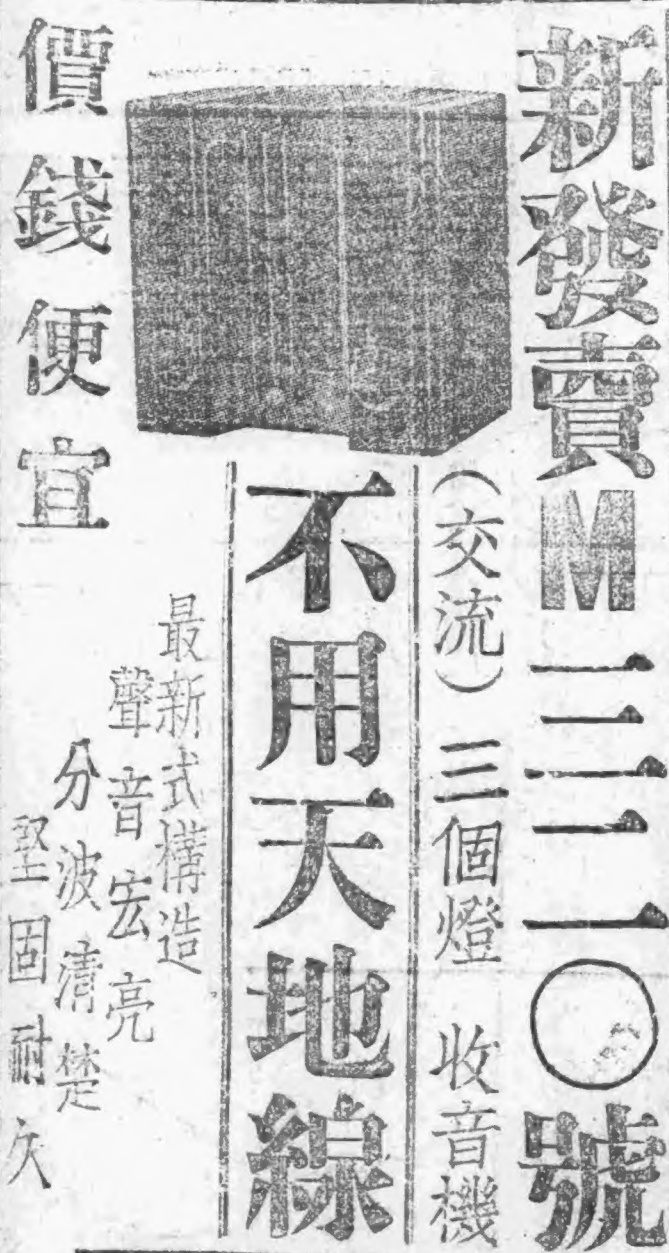 新發賣M三二〇號
(交流)三個燈 收音機
不用天地線
最新式構造
聲音宏亮
分波清楚
堅固耐久
價錢便宜